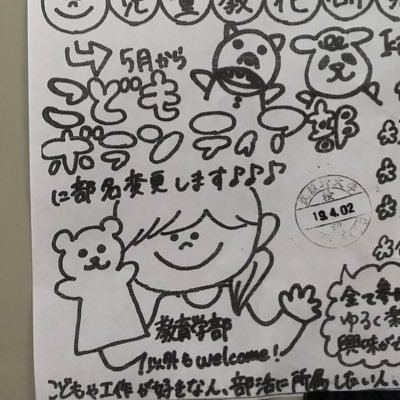 児童教化研
5月から
こども
ボランティア部
に部名変更します♪♪♪
19.4.02
教育学部
以外もwelcome!
全て参
ゆるく楽
興味が
こどもや工作が好きな人、部活に所属したい人、